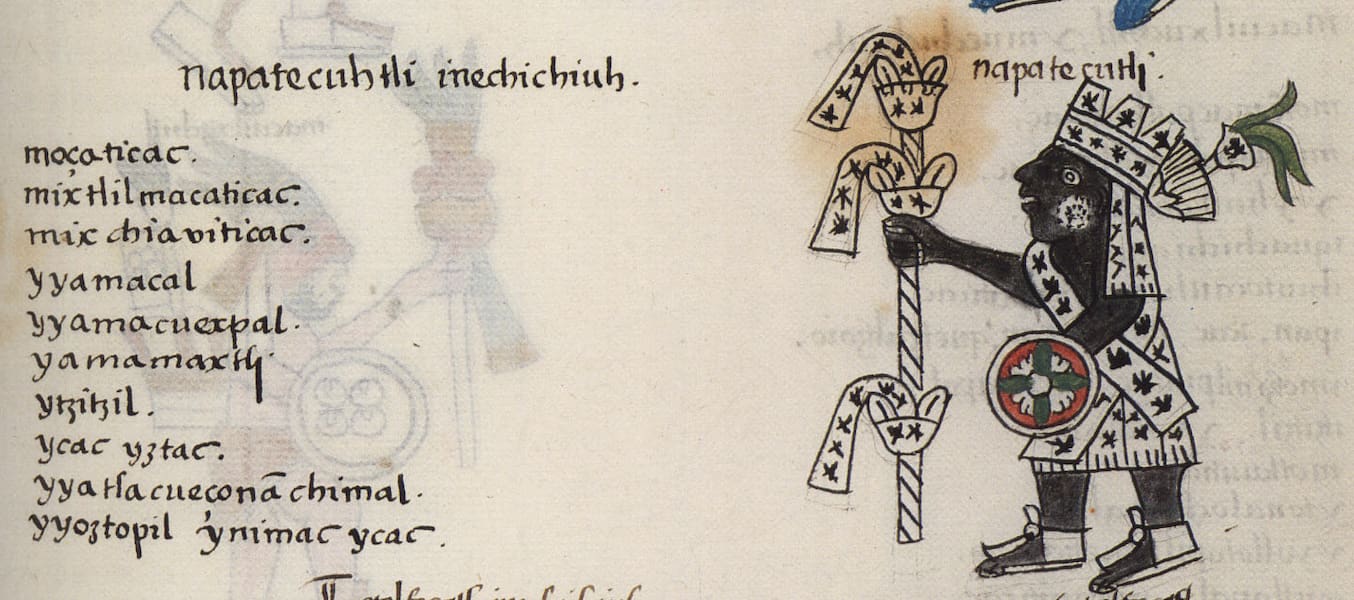 napatecuhtli inechichiuh.
napatecutlj.
moçaticac.
mixtlilmacaticac.
mixchiaviticac.
yyamacal
yyamacuexpal.
yamamaxtlj.
ytzitzil.
ycac yztac.
yyatlacueçonā chimal.
yyoztopil ynimac ycac.